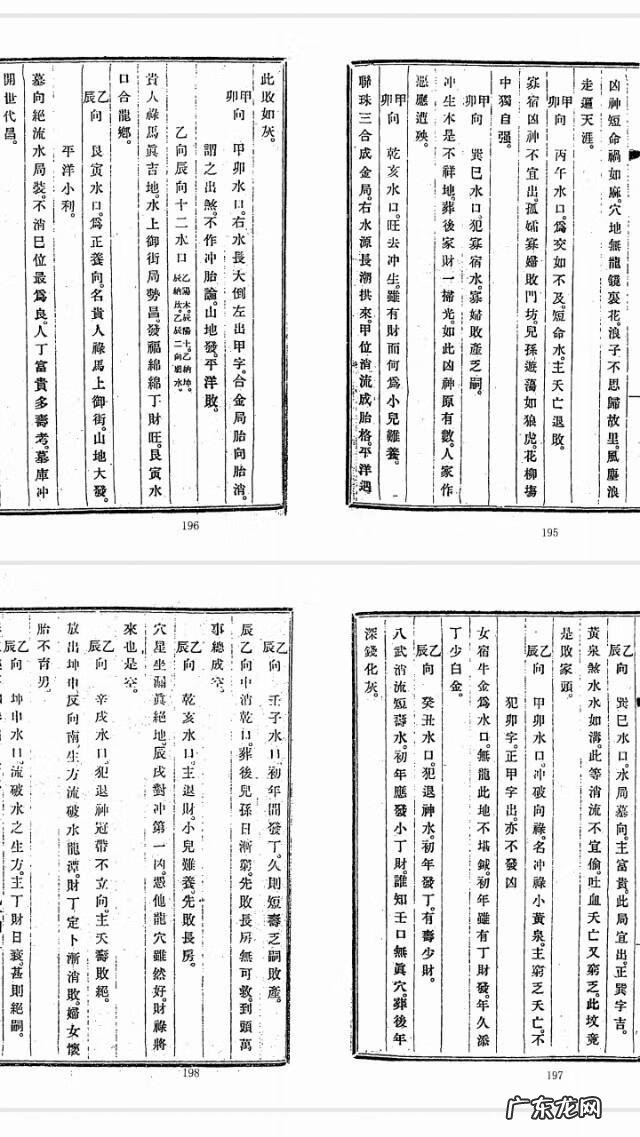 凶神短命禍如麻。穴地無龍錢裹花。浪子不思歸故里。風塵浪
走遍天涯。
甲卯向 丙午水口。為交如不及。短命水。主夭亡退敗。
寡宿凶神不宜出。孤孀寡婦敗門坊。兒孫遊蕩如狼虎。花柳塲
中獨自强。
甲卯向 巽巳水口。犯寡宿水。寡婦敗產乏嗣。
冲生木是不祥地。葬後家財一掃光。如此凶神原有數。人家作
惡應遭殃。
甲卯向 乾亥水口。旺去冲生。雖有財而何為。小兒難養。
聯珠三合成金局。右水源長潮拱來。甲位消流成胎格。平洋遇
195
此敗如灰。
甲卯向 甲卯水口。右水長大倒左出甲字。合金局胎向胎消。
謂之出煞。不作冲胎論。山地發。平洋敗。
乙向辰向十二水口
貴人祿馬眞吉地。水上御街局勢昌。發福綿綿丁財旺。艮寅水
口合龍鄉。
乙辰向 艮寅水口。為正養向。名貴人祿馬上御街。山地大發。
平洋小利。
墓向絕流水局裝。不消巳位最為良。人丁富貴多壽考。墓庫冲
開世代昌。
196
乙辰向 巽巳水口。水局墓向。主富貴。此局宜出。正巽字吉。
黃泉煞水水如溝。此等消流不宜偷。吐血夭亡又窮乏。此墳竟
是敗家頭。
乙辰向 甲卯水口。冲破向祿。名冲祿小黃泉。主窮乏夭亡。不
犯卯字。正甲字出。亦不發凶
女宿牛金為水口。無龍此地不堪鉞。初年雖有丁財發。年久添
丁少白金。
乙辰向 癸丑水口。犯退神水。初年發丁。有壽少財。
八武消流短壽水。初年應發小丁財。誰知壬口無眞穴。葬後年
深錢化灰。
197
乙辰向 壬子水口。初年間發丁。久則短壽乏嗣敗產。
辰乙向中消乾口。葬後兒孫日漸窮。先敗長房無可救。到頭萬
事總成空。
乙辰向 乾亥水口。主退財。小兒難養。先敗長房。
穴星坐漏眞絕地。辰戌對冲第一凶。憑他龍穴雖然好。財祿將
來也是空。
乙辰向 辛戌水口。犯退神冠帶不立向。主夭壽敗絕。
放出坤申反向南。生方流破水龍潭。財丁定卜漸消敗。婦女懷
胎不育男。
乙辰向 坤申水口。流破水之生方。主丁財日衰。甚則絕嗣。
198
广东龙网